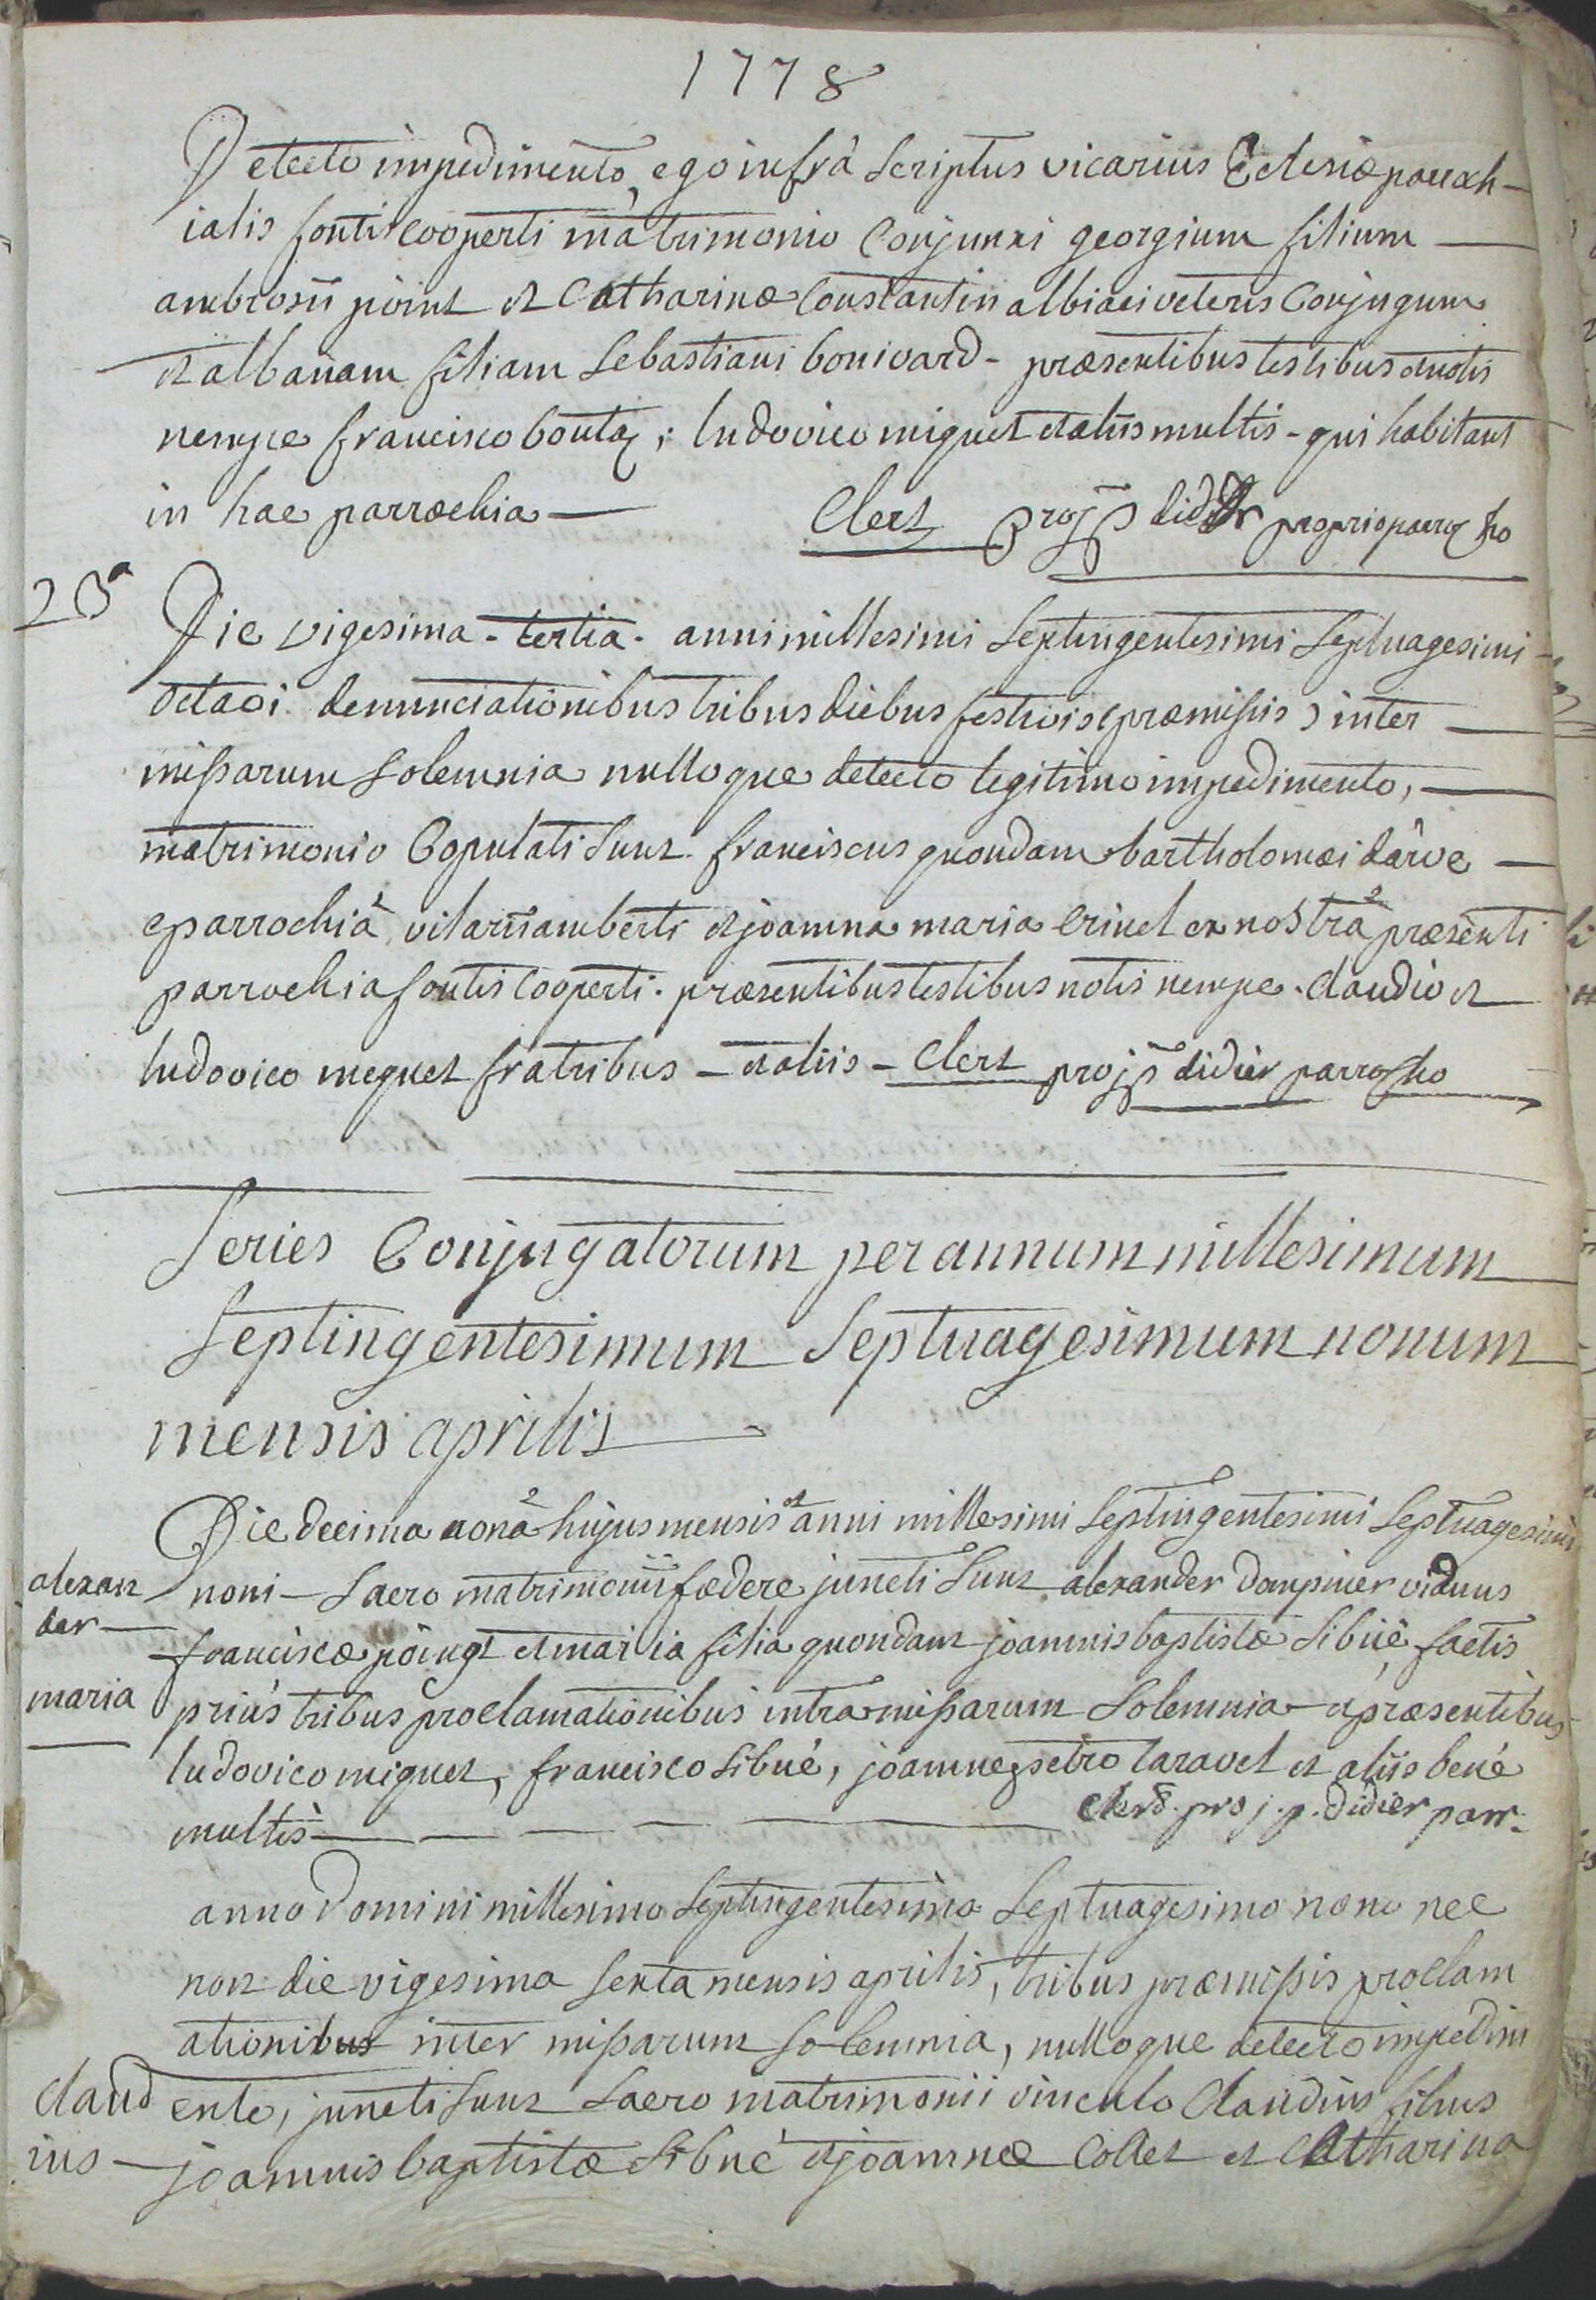 1778
Detecto impedimento, ego infrà scriptus vicarius Eclesiæ parrach-
ialis fontis cooperti matrimonio conjunxi georgium filium
ambrosii point et Catharinæ Constantin albiaci veteris conjugum
et albanam filiam Sebastiani bonivard - præsentibus testibus et notis
nempe francisco boutaz; ludovico miguet et aliis multis - qui habitant
in hac parrochia
Clert pro j p didier proprio parrocho
23a
Die vigesima - tertia - anni millesimi septingentesimi septuagesimi
octavi denunciationibus tribus diebus festivis (præmissis) inter
missarum solemnia nulloque detecto legitimo impedimento,
matrimonio copulati sunt franciscus quondam bartholomæi darve
e parrochiâ vilarii amberti et joanna maria crinel ex nostrâ præsenti
parrochia fontis cooperti. præsentibus testibus notis nempe claudio et
ludovico meguet fratribus - et aliis - Clert pro j p didier parrocho
Series Conjugatorum per annum millesimum
septingentesimum septuagesimum nonum
mensis aprilis
Die decima nonâ hujus mensis et anni millesimi septingentesimi septuagesimi
alexan noni - sacro matrimonii fœdere juncti sunt alexander dompnier viduus
der franciscæ pöingt et maria filia quondam joannis baptistæ sibué, factis
maria priùs tribus proclamationibus intra missarum solemnia et præsentibus
ludovico miguet, francisco sibué, joanne petro taravel et aliis benè
multis clert. pro j. p. didier parr.
anno domini millesimo septingentesimo septuagesimo nono nec
non die vigesima sexta mensis aprilis, tribus præmissis proclam
ationibus inter missarum solemnia, nulloque detecto impedim
claud ento, juncti sunt sacro matrimonii vinculo Claudius filius
ius joannis baptistæ sibué et joannæ Collet et Catharina